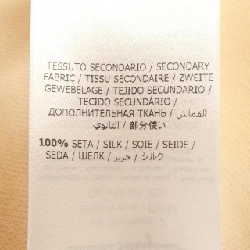 TESSUTO SECONDARIO / SECONDARY
FABRIC / TISSU SECONDAIRE / ZWEITE
GEWEBELAGE / TEJIDO SECUNDARIO /
TECIDO SECUNDÁRIO /
ДОПОЛНИТЕЛЬНАЯ ТКАНЬ / القماش
الثانوي / 部分使い
100% SETA / SILK / SOIE / SEIDE /
SEDA / ШЕЛК / حرير / シルク